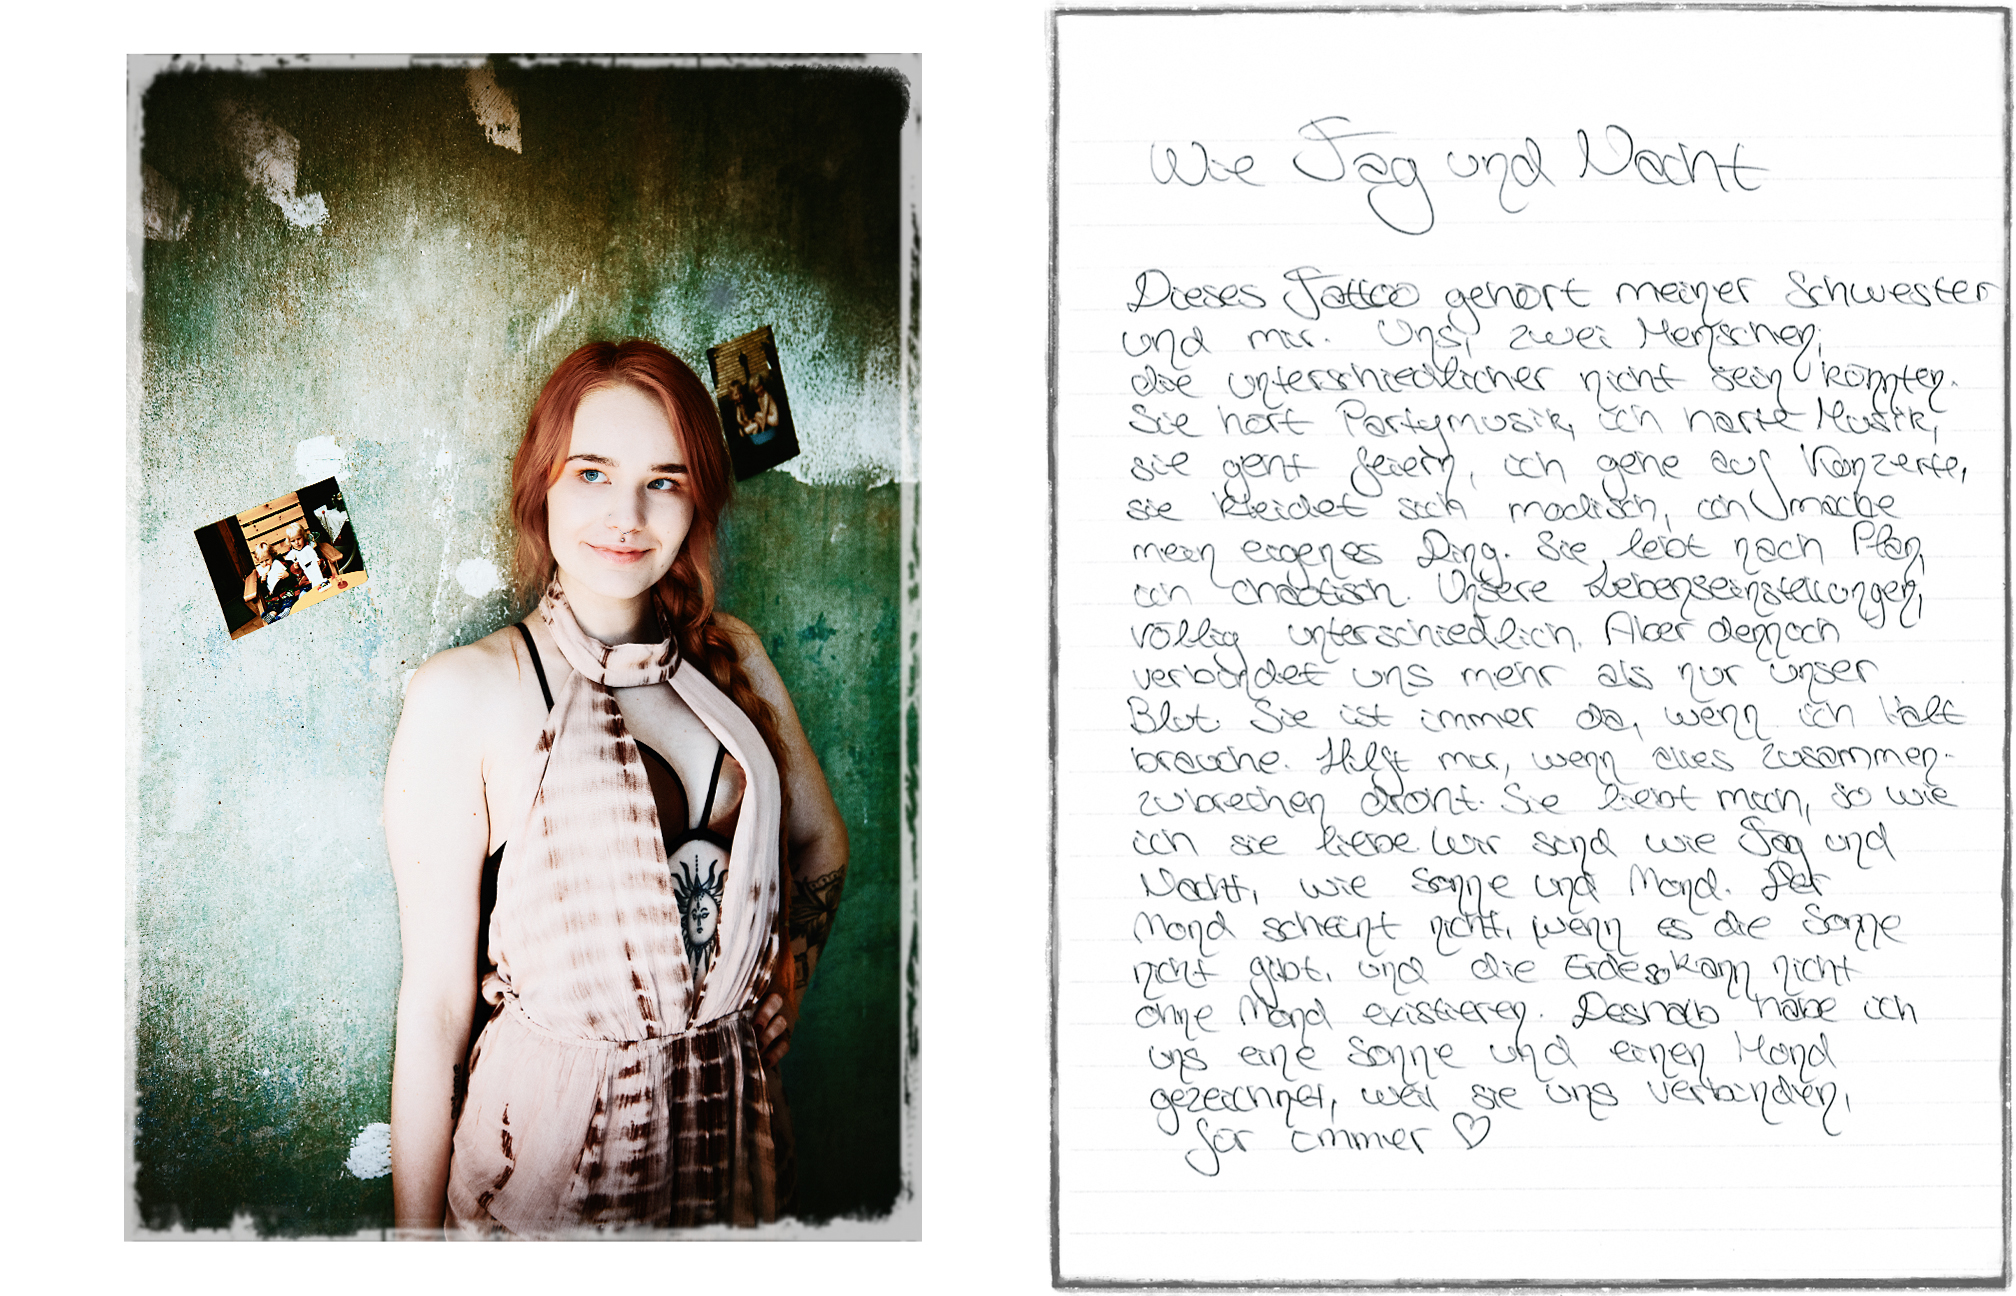 Wie Tag und Nacht
Dieses Tattoo gehört meiner Schwester
und mir. Uns, zwei Menschen,
die unterschiedlicher nicht sein könnten.
Sie hört Partymusik, ich harte Musik,
sie geht feiern, ich gehe auf Konzerte,
sie kleidet sich modisch, ich mache
mein eigenes Ding. Sie lebt nach Plan,
ich chaotisch. Unsere Lebenseinstellungen,
völlig unterschiedlich. Aber dennoch
verbindet uns mehr als nur unser
Blut. Sie ist immer da, wenn ich Halt
brauche. Hilft mir, wenn alles zusammen-
zubrechen droht. Sie liebt mich, so wie
ich sie liebe. Wir sind wie Tag und
Nacht, wie Sonne und Mond. Der
Mond scheint nicht, wenn es die Sonne
nicht gibt, und die Erde kann nicht
ohne Mond existieren. Deshalb habe ich
uns eine Sonne und einen Mond
gezeichnet, weil sie uns verbinden,
für immer ♡